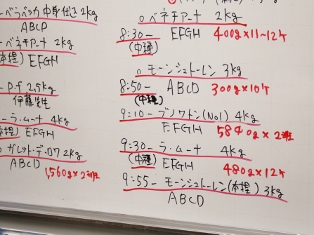 ベラベッカ 中取付き 2kg
ABCD
ベネキアーナ 2kg
(本捏) EFGH
P.F 2.5kg
伊藤先生
ラ・ムーナ 4kg
EFGH
ガレット・デ・ロワ 2kg
ABCD
1,560g×2班
ベネキアーナ 2kg
8:30- EFGH 400g×11~12ヶ
(中種)
モーンシュトーレン 3kg
8:50- ABCD 300g×10ヶ
(中種)
9:10- (No1) 4kg
EFGH 5840g×2班
9:30- ラ・ムーナ 4kg
(中種) EFGH 480g×12ヶ
9:55- モーンシュトーレン(本捏) 3kg
ABCD